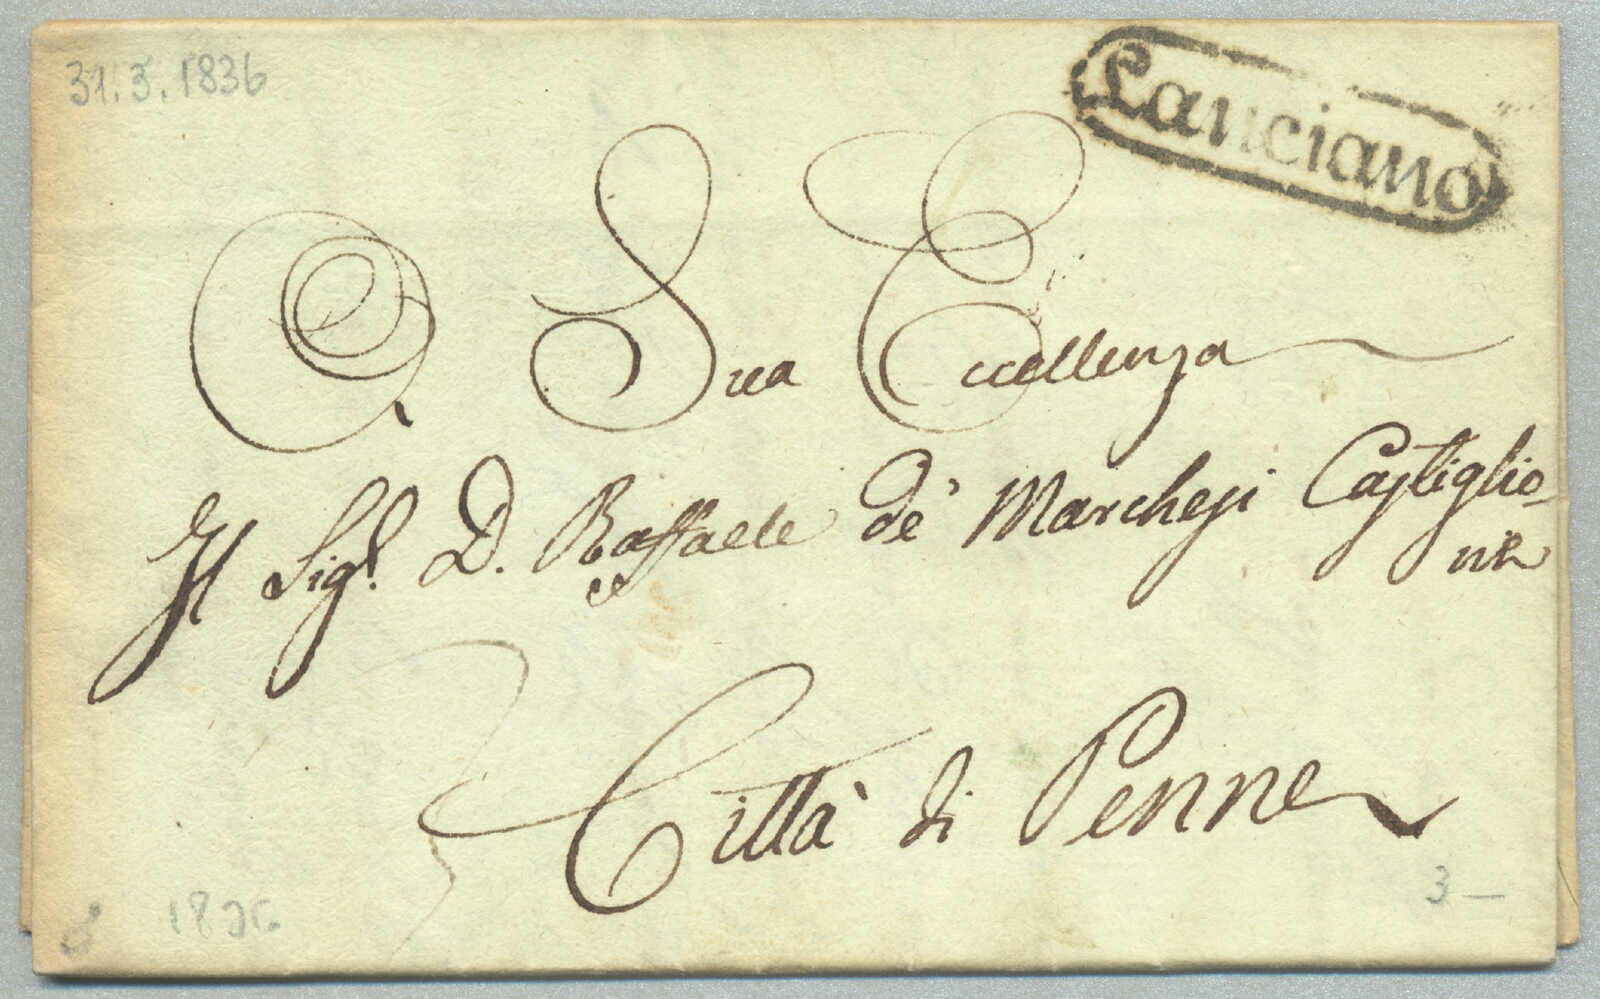 31.3.1836
Lanciano
A Sua Eccellenza
Il Sigr. D. Raffaele de' Marchesi Castiglio-
ne
Città di Penne
1836
3 –